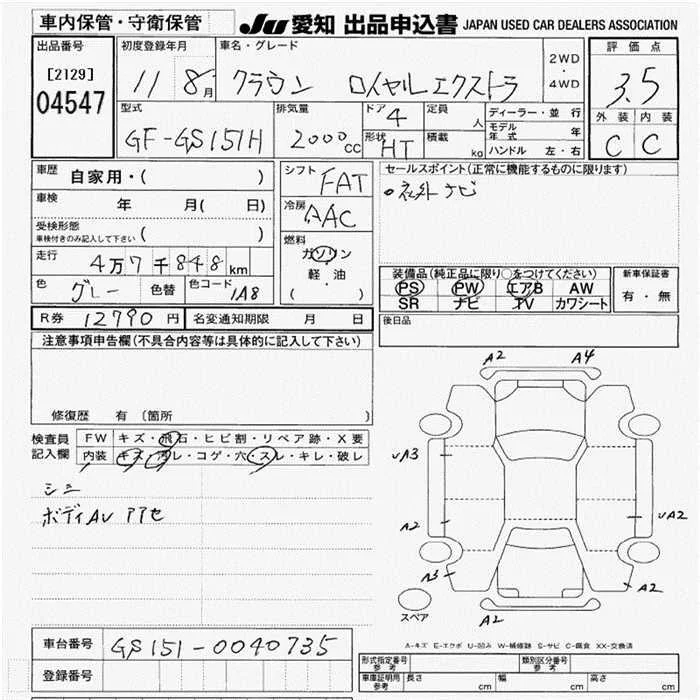 車内保管・守衛保管 JU 愛知 出品申込書 JAPAN USED CAR DEALERS ASSOCIATION
出品番号 [2129] 04547
初度登録年月 11 8月
車名・グレード クラウン ロイヤルエクストラ 2WD・4WD
評価点 3.5
型式 GF-GS151H
排気量 2000cc
ドア 4 定員 人
形状 HT 積載 kg
ディーラー・並行
モデル年式 年
ハンドル 左・右
外装 内装
C C
車歴 自家用・( )
車検 年 月( 日)
受検形態 車検付きのみ記入して下さい ( )
走行 4万7千848km
色 グレー 色替 色コード 1A8
シフト FAT
冷房 AAC
燃料 ガソリン
軽・油
( ・ )
セールスポイント(正常に機能するものに限ります)
ナビ
装備品(純正品に限り○をつけてください)
PS PW エアB AW
SR ナビ TV カワシート
新車保証書
有・無
R券 12790円 名変通知期限 月 日
後日品
注意事項申告欄(不具合内容等は具体的に記入して下さい)
修復歴 有 〔箇所
検査員記入欄
FW キズ・飛石・ヒビ割・リペア跡・X要
内装 キズ・汚レ・コゲ・穴・スレ・キレ・破レ
シミ
ボディAV アアセ
A2 A4
UA3
A2 UA2
A3 A2
A2
スペア
A-キズ E-エクボ U-凹み W-補修跡 S-サビ C-腐食 XX-交換済
車台番号 GS151-0040735
登録番号
形式指定番号 参考 類別区分番号 参考
車庫証明用 参考 長さ cm 幅 cm 高さ cm